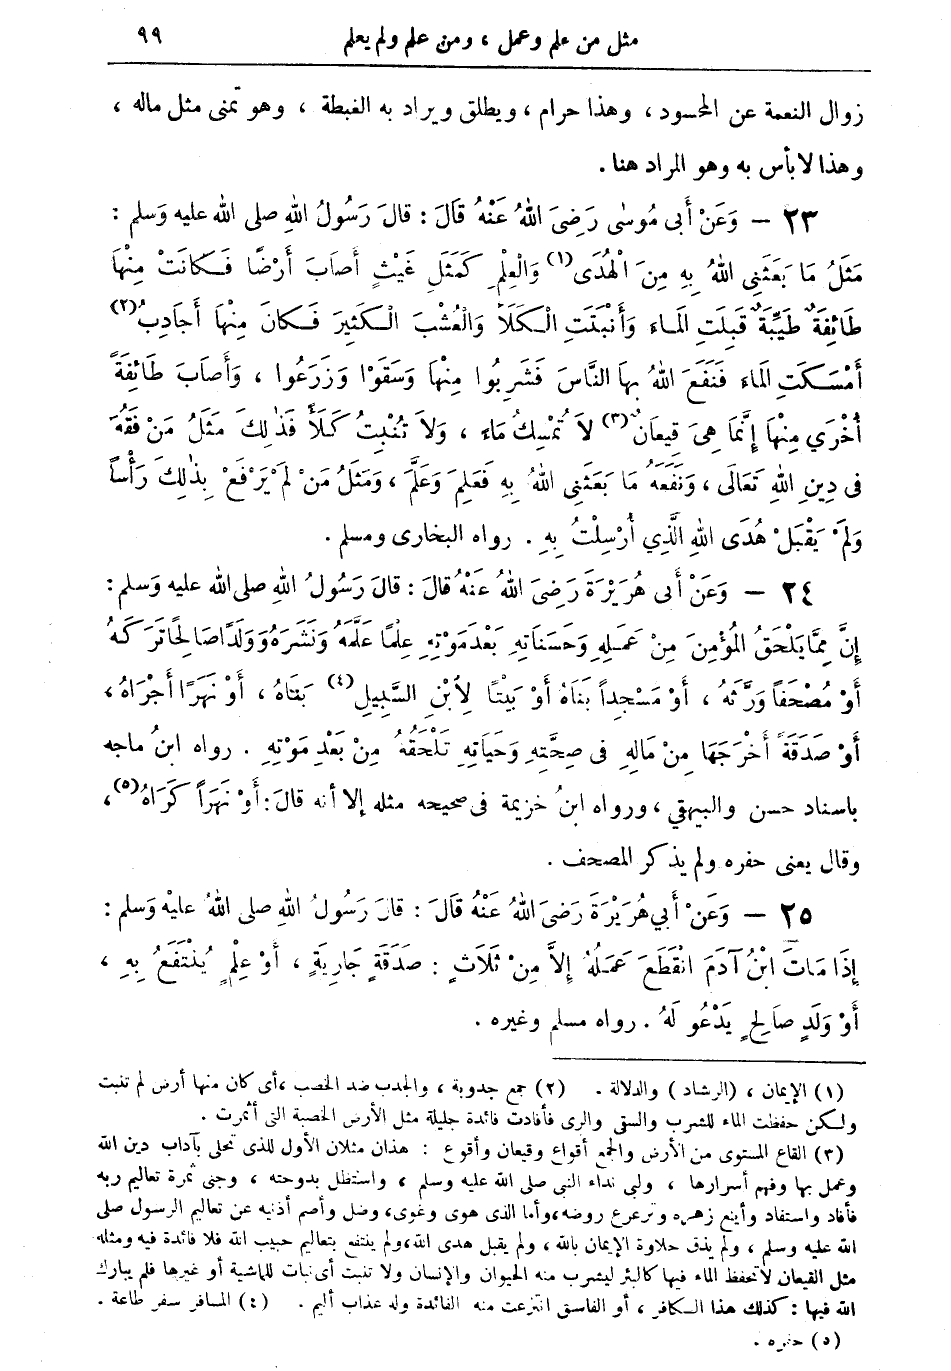 مثل من علم وعمل ، ومن علم ولم يعلم ٩٩
زوال النعمة عن المحسود ، وهذا حرام ، ويطلق ويراد به الغبطة ، وهو تمنى مثل ماله ،
وهذا لا بأس به وهو المراد هنا .
٢٣ – وَعَنْ أَبِى مُوسٰى رَضِىَ اللهُ عَنْهُ قَالَ : قالَ رَسُولُ اللهِ صلى الله عليه وَسلم :
مَثَلُ مَا بَعَثَنِى اللهُ بِهِ مِنَ الْهُدَى (١) وَالْعِلْمِ كَمَثَلِ غَيْثٍ أَصَابَ أَرْضًا فَكَانَتْ مِنْهَا
طَائِفَةٌ طَيِّبَةٌ قَبِلَتِ المَاءَ وَأَنْبَتَتِ الْكَلَأَ وَالْعُشْبَ الْكَثِيرَ فَكَانَ مِنْهَا أَجَادِبُ (٢)
أَمْسَكَتِ المَاءَ فَنَفَعَ اللهُ بِهَا النَّاسَ فَشَرِبُوا مِنْهَا وَسَقَوْا وَزَرَعُوا ، وَأَصَابَ طَائِفَةً
أُخْرَي مِنْهَا إِنَّمَا هِىَ قِيعَانٌ (٣) لاَ تُمْسِكُ مَاءً ، وَلاَ تُنْبِتُ كَلَأً فَذٰلِكَ مَثَلُ مَنْ فَقُهَ
فِى دِينِ اللهِ تَعَالَى ، وَنَفَعَهُ مَا بَعَثَنِى اللهُ بِهِ فَعَلِمَ وَعَلَّمَ ، وَمَثَلُ مَنْ لَمْ يَرْفَعْ بِذٰلِكَ رَأْساً
وَلَمْ يَقْبَلْ هُدَى اللهِ الَّذِي أُرْسِلْتُ بِهِ . رواه البخارى ومسلم .
٢٤ – وَعَنْ أَبِى هُرَيْرَةَ رَضِىَ اللهُ عَنْهُ قالَ : قالَ رَسُولُ اللهِ صلى الله عليه وَسلم :
إِنَّ مِمَّا يَلْحَقُ المُؤْمِنَ مِنْ عَمَلِهِ وَحَسَنَاتِهِ بَعْدَ مَوْتِهِ عِلْمًا عَلَّمَهُ وَنَشَرَهُ وَوَلَدًا صَالِحًا تَرَكَهُ
أَوْ مُصْحَفاً وَرَّثَهُ ، أَوْ مَسْجِداً بَنَاهُ أَوْ بَيْتًا لِأَبْنِ السَّبِيلِ (٤) بَنَاهُ ، أَوْ نَهَرًا أَجْرَاهُ ،
أَوْ صَدَقَةً أَخْرَجَهَا مِنْ مَالِهِ فِى صِحَّتِهِ وَحَيَاتِهِ تَلْحَقُهُ مِنْ بَعْدِ مَوْتِهِ . رواه ابنُ ماجه
باسناد حسن والبيهقي ، ورواه ابنُ خزيمة فى صحيحه مثله إلا أنه قالَ : أَوْ نَهَراً كَرَاهُ (٥) ،
وقال يعنى حفره ولم يذكر المصحف .
٢٥ – وَعَنْ أَبِي هُرَيْرَةَ رَضِىَ اللهُ عَنْهُ قَالَ : قالَ رَسُولُ اللهِ صلى اللهُ عليْه وَسلم :
إِذَا مَاتَ ابْنُ آدَمَ انْقَطَعَ عَمَلُهُ إِلاَّ مِنْ ثَلاَثٍ : صَدَقَةٍ جَارِيَةٍ ، أَوْ عِلْمٍ يُنْتَفَعُ بِهِ ،
أَوْ وَلَدٍ صَالِحٍ يَدْعُو لَهُ . رواه مسلم وغيره .
(١) الإيمان ، (الرشاد) والدلالة . (٢) جمع جدوبة ، والجدب ضد الخصب ، أى كان منها أرض لم تنبت
ولكن حفظت الماء للشرب والسقى والرى فأفادت فائدة جليلة مثل الأرض الخصبة التى أثمرت .
(٣) القاع المستوى من الأرض والجمع أقواع وقيعان وأقوع : هذان مثلان الأول للذى تحلى بآداب دين الله
وعمل بها وفهم أسرارها ، ولبى نداء النبى صلى الله عليه وسلم ، واستظل بدوحته ، وجنى ثمرة تعاليم ربه
فأفاد واستفاد وأينع زهره وترعرع روضه، وأما الذى هوى وغوى، وضل وأصم أذنيه عن تعاليم الرسول صلى
الله عليه وسلم ، ولم يذق حلاوة الإيمان بالله ، ولم يقبل هدى الله، ولم ينتفع بتعاليم حبيب الله فلا فائدة فيه ومثله
مثل القيعان لا تحفظ الماء فيها كالبئر ليشرب منه الحيوان والإنسان ولا تنبت أى نبات للماشية أو غيرها فلم يبارك
الله فيها : كذلك هذا الكافر ، أو الفاسق انتزعت منه الفائدة وله عذاب أليم . (٤) المسافر سفر طاعة .
(٥) حفره .